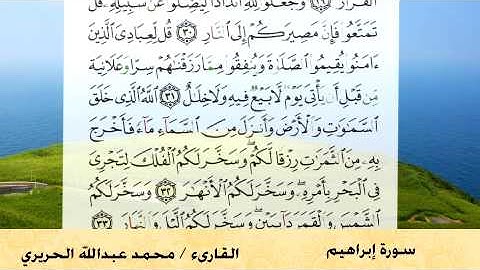 ٱلْقَرَارُ ﴿٢٩﴾ وَجَعَلُوا۟ لِلَّهِ أَندَادًا لِّيُضِلُّوا۟ عَن سَبِيلِهِۦ قُلْ
تَمَتَّعُوا۟ فَإِنَّ مَصِيرَكُمْ إِلَى ٱلنَّارِ ﴿٣٠﴾ قُل لِّعِبَادِىَ ٱلَّذِينَ
ءَامَنُوا۟ يُقِيمُوا۟ ٱلصَّلَوٰةَ وَيُنفِقُوا۟ مِمَّا رَزَقْنَٰهُمْ سِرًّا وَعَلَانِيَةً
مِّن قَبْلِ أَن يَأْتِىَ يَوْمٌ لَّا بَيْعٌ فِيهِ وَلَا خِلَٰلٌ ﴿٣١﴾ ٱللَّهُ ٱلَّذِى خَلَقَ
ٱلسَّمَٰوَٰتِ وَٱلْأَرْضَ وَأَنزَلَ مِنَ ٱلسَّمَآءِ مَآءً فَأَخْرَجَ
بِهِۦ مِنَ ٱلثَّمَرَٰتِ رِزْقًا لَّكُمْ ۖ وَسَخَّرَ لَكُمُ ٱلْفُلْكَ لِتَجْرِىَ
فِى ٱلْبَحْرِ بِأَمْرِهِۦ ۖ وَسَخَّرَ لَكُمُ ٱلْأَنْهَٰرَ ﴿٣٢﴾ وَسَخَّرَ لَكُمُ
ٱلشَّمْسَ وَٱلْقَمَرَ دَآئِبَيْنِ ۖ وَسَخَّرَ لَكُمُ ٱلَّيْلَ وَٱلنَّهَارَ ﴿٣٣﴾
سورة إبراهيم
القارىء / محمد عبدالله الحريري